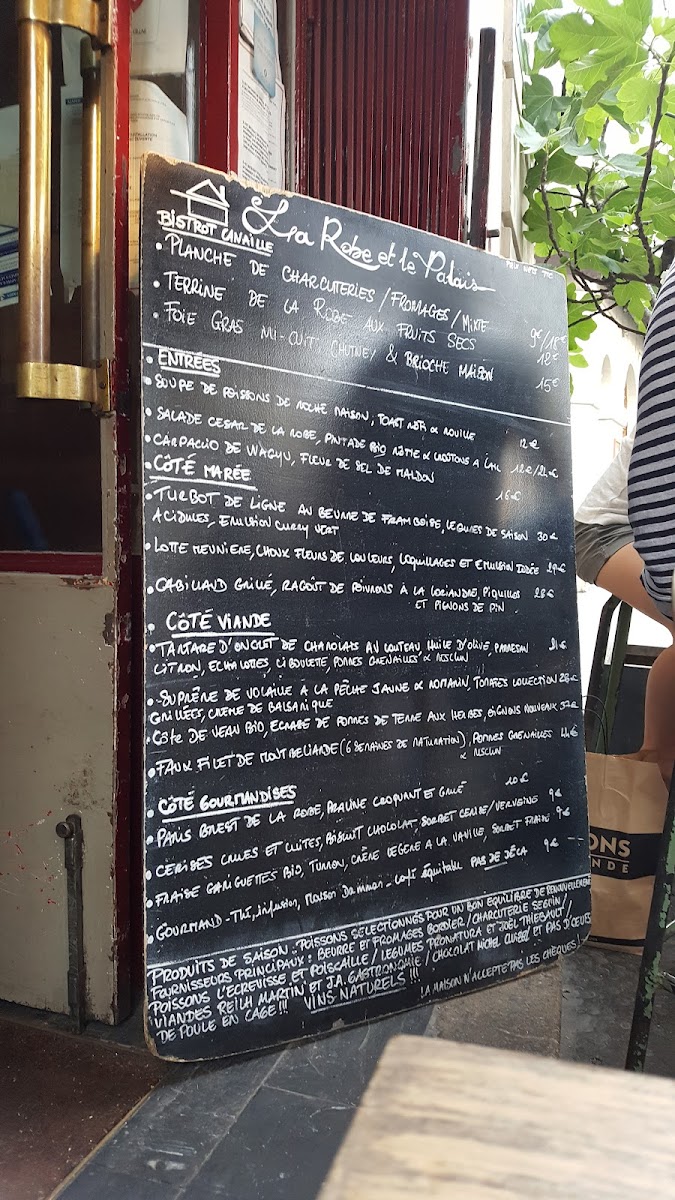 BISTROT CANAILLE
La Robe et le Palais
PRIX NETS TTC
• PLANCHE DE CHARCUTERIES / FROMAGES / MIXTE 9€/18€
• TERRINE DE LA ROBE AUX FRUITS SECS 12€
• FOIE GRAS MI-CUIT, CHUTNEY & BRIOCHE MAISON 15€
• ENTRÉES
• SOUPE DE POISSONS DE ROCHE MAISON, TOAST & ROUILLE 12€
• SALADE CESAR DE LA ROBE, PINTADE BIO, ROMAINE & CROUTONS A L'AIL 12€/24€
• CARPACCIO DE WAGYU, FLEUR DE SEL DE MALDON 16€
• CÔTÉ MARÉE
• TURBOT DE LIGNE AU BEURRE DE FRAMBOISE, LEGUMES DE SAISON 30€
ACIDULES, EMULSION CURRY VERT
• LOTTE MEUNIERE, CHOUX FLEURS DE COULEURS, COQUILLAGES ET EMULSION IODÉE 29€
• CABILLAUD GRILLÉ, RAGOÛT DE POIVRONS À LA CORIANDRE, PIQUILLOS 28€
ET PIGNONS DE PIN
• CÔTÉ VIANDE
• TARTARE D'ONGLET DE CHAROLAIS AU COUTEAU, HUILE D'OLIVE, PARMESAN 21€
CITRON, ECHALOTTES, CIBOULETTE, POMMES GRENAILLES & MESCLUN
• SUPRÊME DE VOLAILLE A LA PÊCHE JAUNE & ROMARIN, TOMATES COLLECTION 28€
GRILLÉES, CREME DE BALSAMIQUE
• CÔTE DE VEAU BIO, ECRASÉ DE POMMES DE TERRE AUX HERBES, OIGNONS NOUVEAUX 32€
• FAUX FILET DE MONTBELIARDE (6 SEMAINES DE MATURATION), POMMES GRENAILLES 44€
& MESCLUN
• CÔTÉ GOURMANDISES
• PARIS BREST DE LA ROBE, PRALINE CROQUANT ET GLACÉ 10€
• CERISES CRUES ET CUITES, BISCUIT CHOCOLAT, SORBET CERISE/VERVEINE 9€
• FRAISE GARIGUETTES BIO, TURRON, CRÈME LEGERE A LA VANILLE, SORBET FRAISE 9€
• GOURMAND - Thé, infusion, Maison Damman - café équitable PAS DE DÉCA 9€
PRODUITS DE SAISON. POISSONS SÉLECTIONNÉS POUR UN BON EQUILIBRE DE RENOUVELLEMENT
FOURNISSEURS PRINCIPAUX: BEURRE ET FROMAGES BORDIER / CHARCUTERIE SEGUIN /
POISSONS L'ECREVISSE ET POISCAILLE / LEGUMES PRONATURA ET JOËL THIEBAULT /
VIANDES REILH MARTIN ET J.A. GASTRONOMIE / CHOCOLAT MICHEL CLUIZEL ET PAS D'OEUFS
DE POULE EN CAGE!!! VINS NATURELS!!! LA MAISON N'ACCEPTE PAS LES CHÈQUES!
ONS
NDE